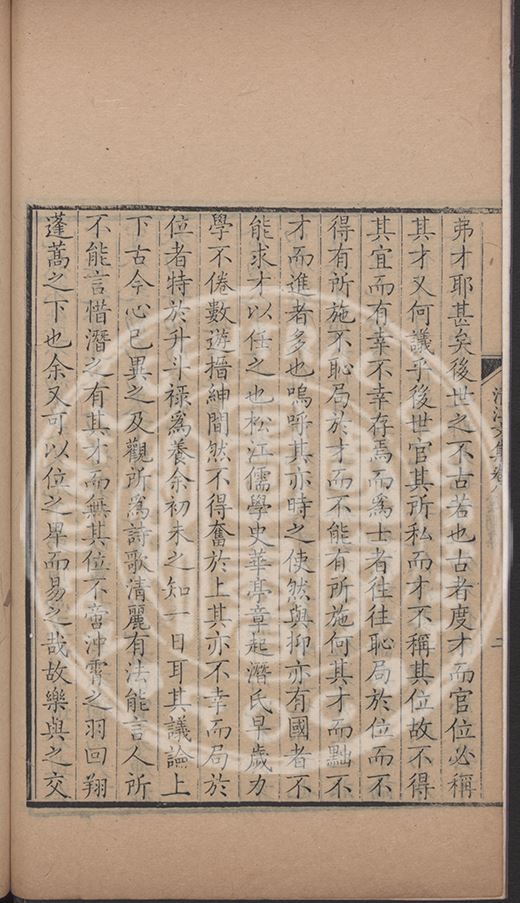 弗才耶甚矣後世之不古若也古者度才而官位必稱
其才又何議乎後世官其所私而才不稱其位故不得
其宜而有幸不幸存焉而為士者徃徃恥局於位而不
得有所施不恥局於才而不能有所施何其才而黜不
才而進者多也嗚呼其亦時之使然與抑亦有國者不
能求才以任之也松江儒學史華亭章起潛氏早歲力
學不倦數遊搢紳間然不得奮於上其亦不幸而局於
位者特於升斗祿為養余初未之知一日耳其議論上
下古今心已異之及觀所為詩歌清麗有法能言人所
不能言惜潛之有其才而無其位不啻沖霄之羽回翔
蓬蒿之下也余又可以位之卑而易之哉故樂與之交